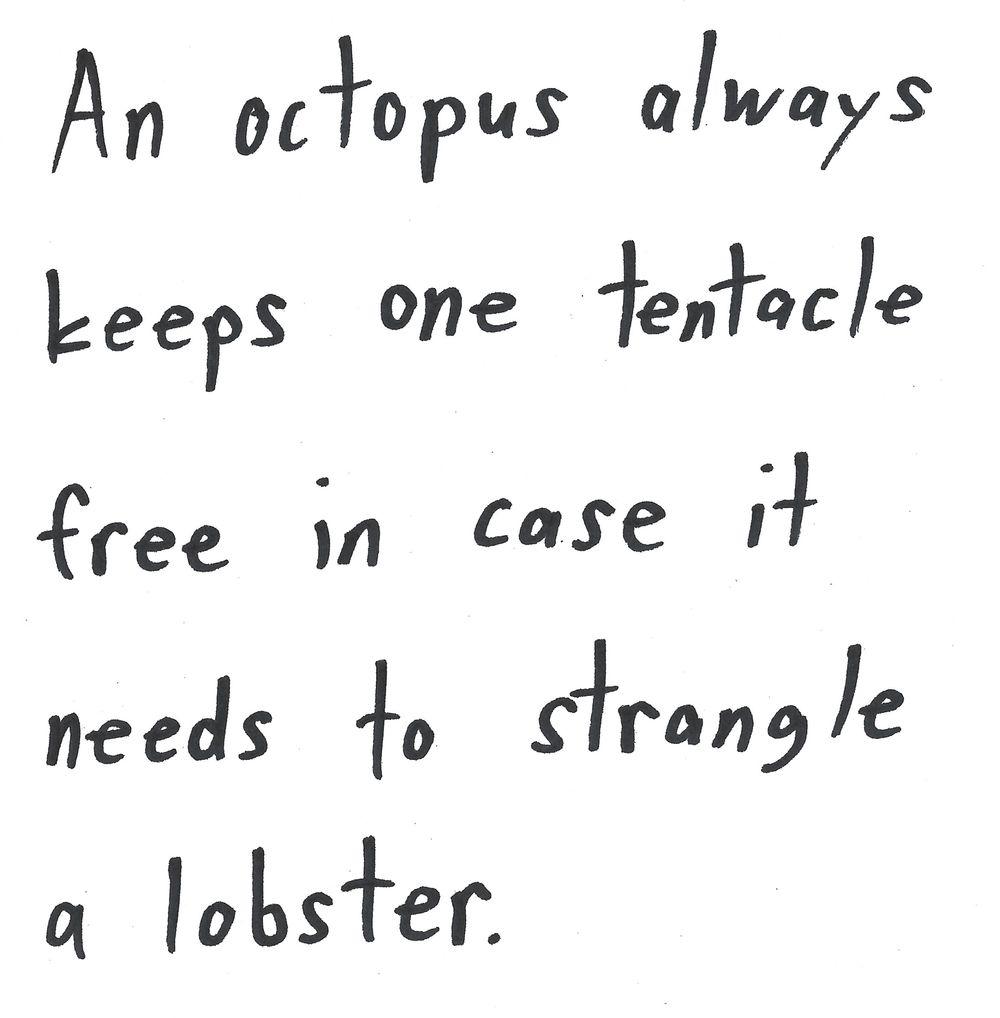 An octopus always
keeps one tentacle
free in case it
needs to strangle
a lobster.